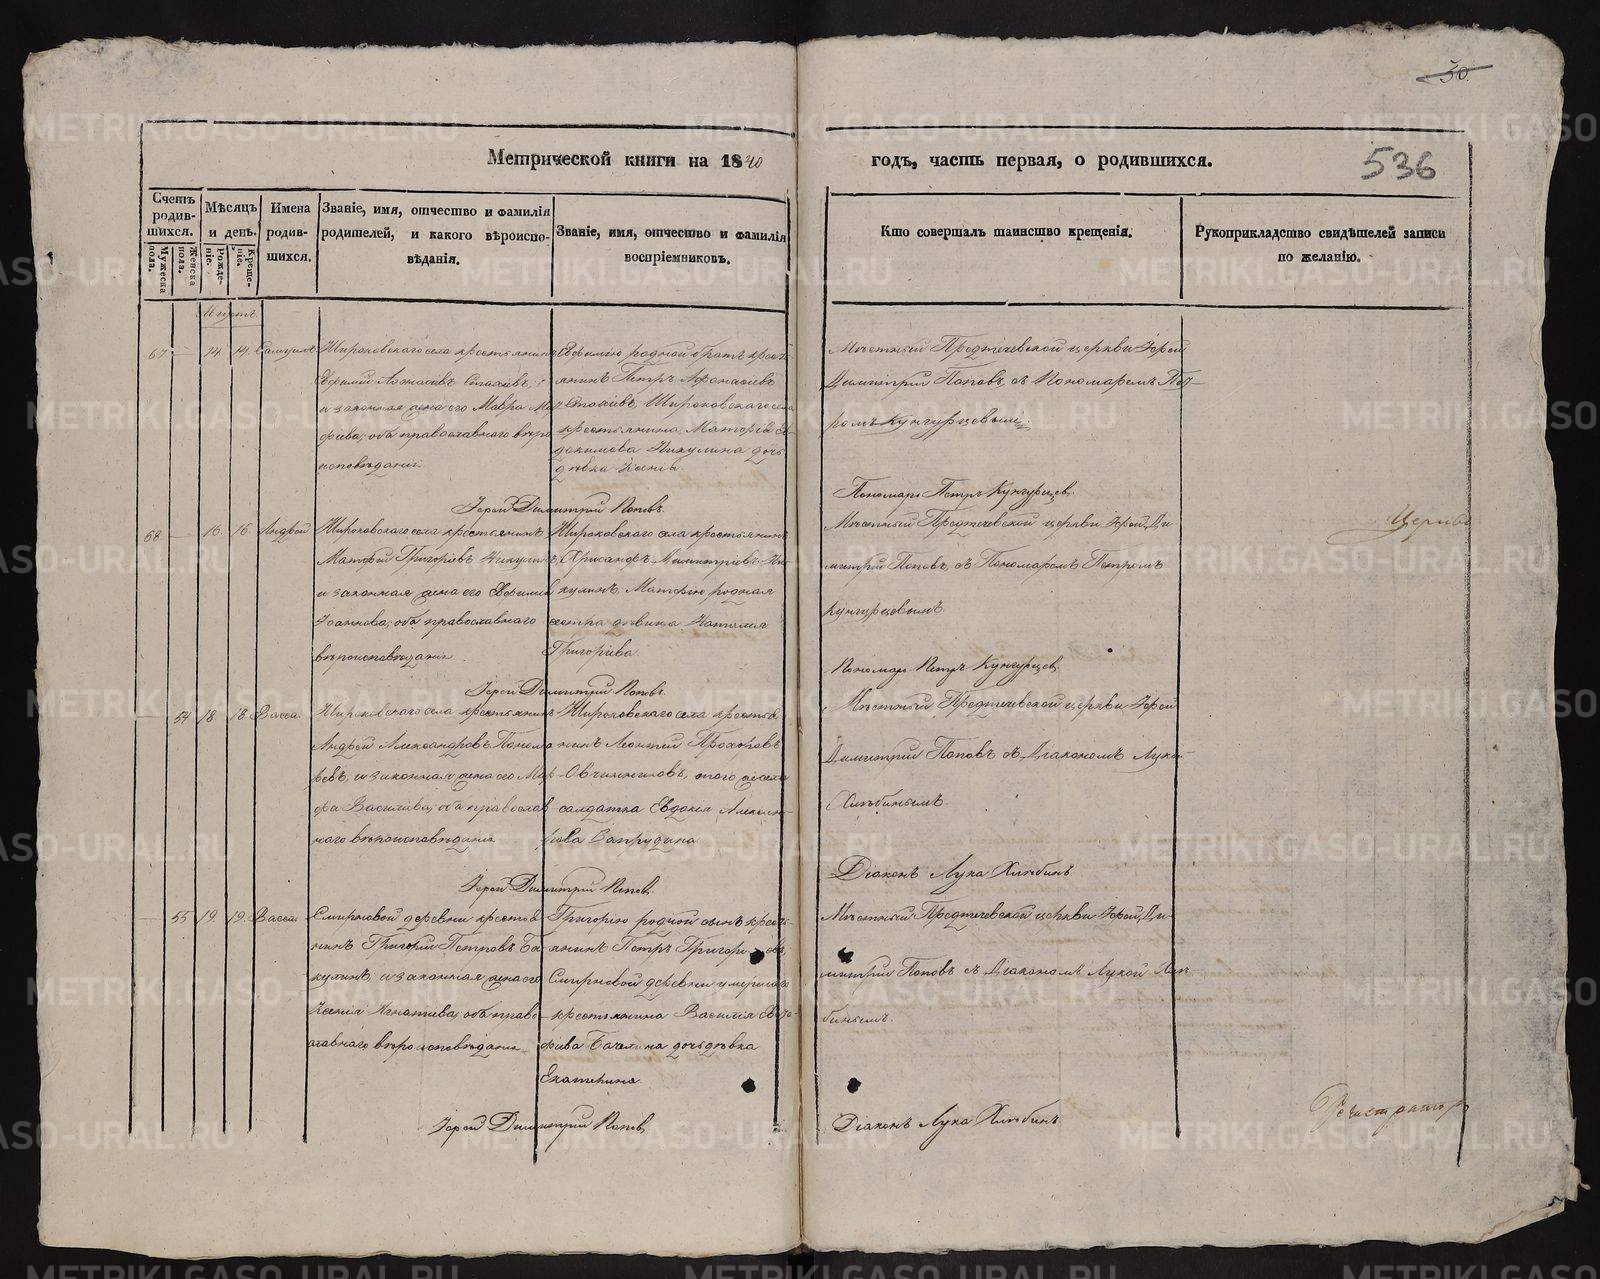 30.
Метрической книги на 1840 годъ, часть первая, о родившихся.
536
Счетъ родив-шихся.
Мужеска пола.
Женска пола.
Мѣсяцъ и день.
Рожде-нія.
Креще-нія.
Имена родив-шихся.
Званіе, имя, отчество и фамилія
родителей, и какого вѣроиспо-
вѣданія.
Званіе, имя, отчество и фамилія
воспріемниковъ.
Кто совершалъ таинство крещенія.
Рукоприкладство свидѣтелей записи
по желанію.
67 — 14. 14.
Широковскаго села крестьянинъ
и законная жена его Мавра
оба православнаго вѣро
исповѣданія
Ефимію родной братъ кресть
янинъ Петръ Афонасіевъ
Широковскаго села
крестьянина
Никулина дочь
дѣвка
Мѣстный Предтечевской церкви Іерей
Димитрій Поповъ, съ Пономаремъ Пет
ромъ Кунгурцевымъ.
Іерей Димитрій Поповъ.
Пономарь Петръ Кунгурцевъ.
68 — 16. 16 Андрей
Широковскаго села крестьянинъ
Матфей Григоріевъ Никулинъ,
и законная жена его Евфимія
Іоаннова, оба православнаго
вѣроисповѣданія
Широковскаго села крестьянинъ
Хрисанфъ Димитріевъ Ни-
кулинъ, Матфію родная
сестра дѣвица Наталия
Григоріева.
Мѣстный Предтечевской церкви Іерей Ди-
митрій Поповъ, съ Пономаремъ Петромъ
Кунгурцевымъ
Церков
Іерей Димитрій Поповъ.
Пономарь Петръ Кунгурцевъ.
— 54 18. 18. Васса
Широковскаго села крестьянинъ
Андрей Александровъ Понома
ревъ, и законная жена его Мар-
фа Василиева, оба православ
наго вѣроисповѣданія
Широковскаго села крестья
нинъ Леонтій
Овчинниковъ, того же села
солдатка Евдокія Алексан-
Мѣстный Предтечевской церкви Іерей
Димитрій Поповъ съ Діакономъ Лукою
Хлѣбинымъ.
Іерей Димитрій Поповъ.
Діаконъ Лука Хлѣбинъ
— 55 19. 19. Васса
Смирновой деревни крестья
нинъ Григорій Петровъ Ба-
кулинъ, и законная жена его
Ксенія Игнатиева, оба право-
славнаго вѣроисповѣданія
Григорію родной сынъ кресть-
янинъ Петръ Григоріевъ
Смирновой деревни умершаго
крестьянина Василія
дочь дѣвка
Екатерина
Мѣстный Предтечевской церкви Іерей Ди-
митрій Поповъ съ Діакономъ Лукой Хлѣ
бинымъ.
Регистраторъ
Іерей Димитрій Поповъ,
Діаконъ Лука Хлѣбинъ
METRIKI.GASO-URAL.RU